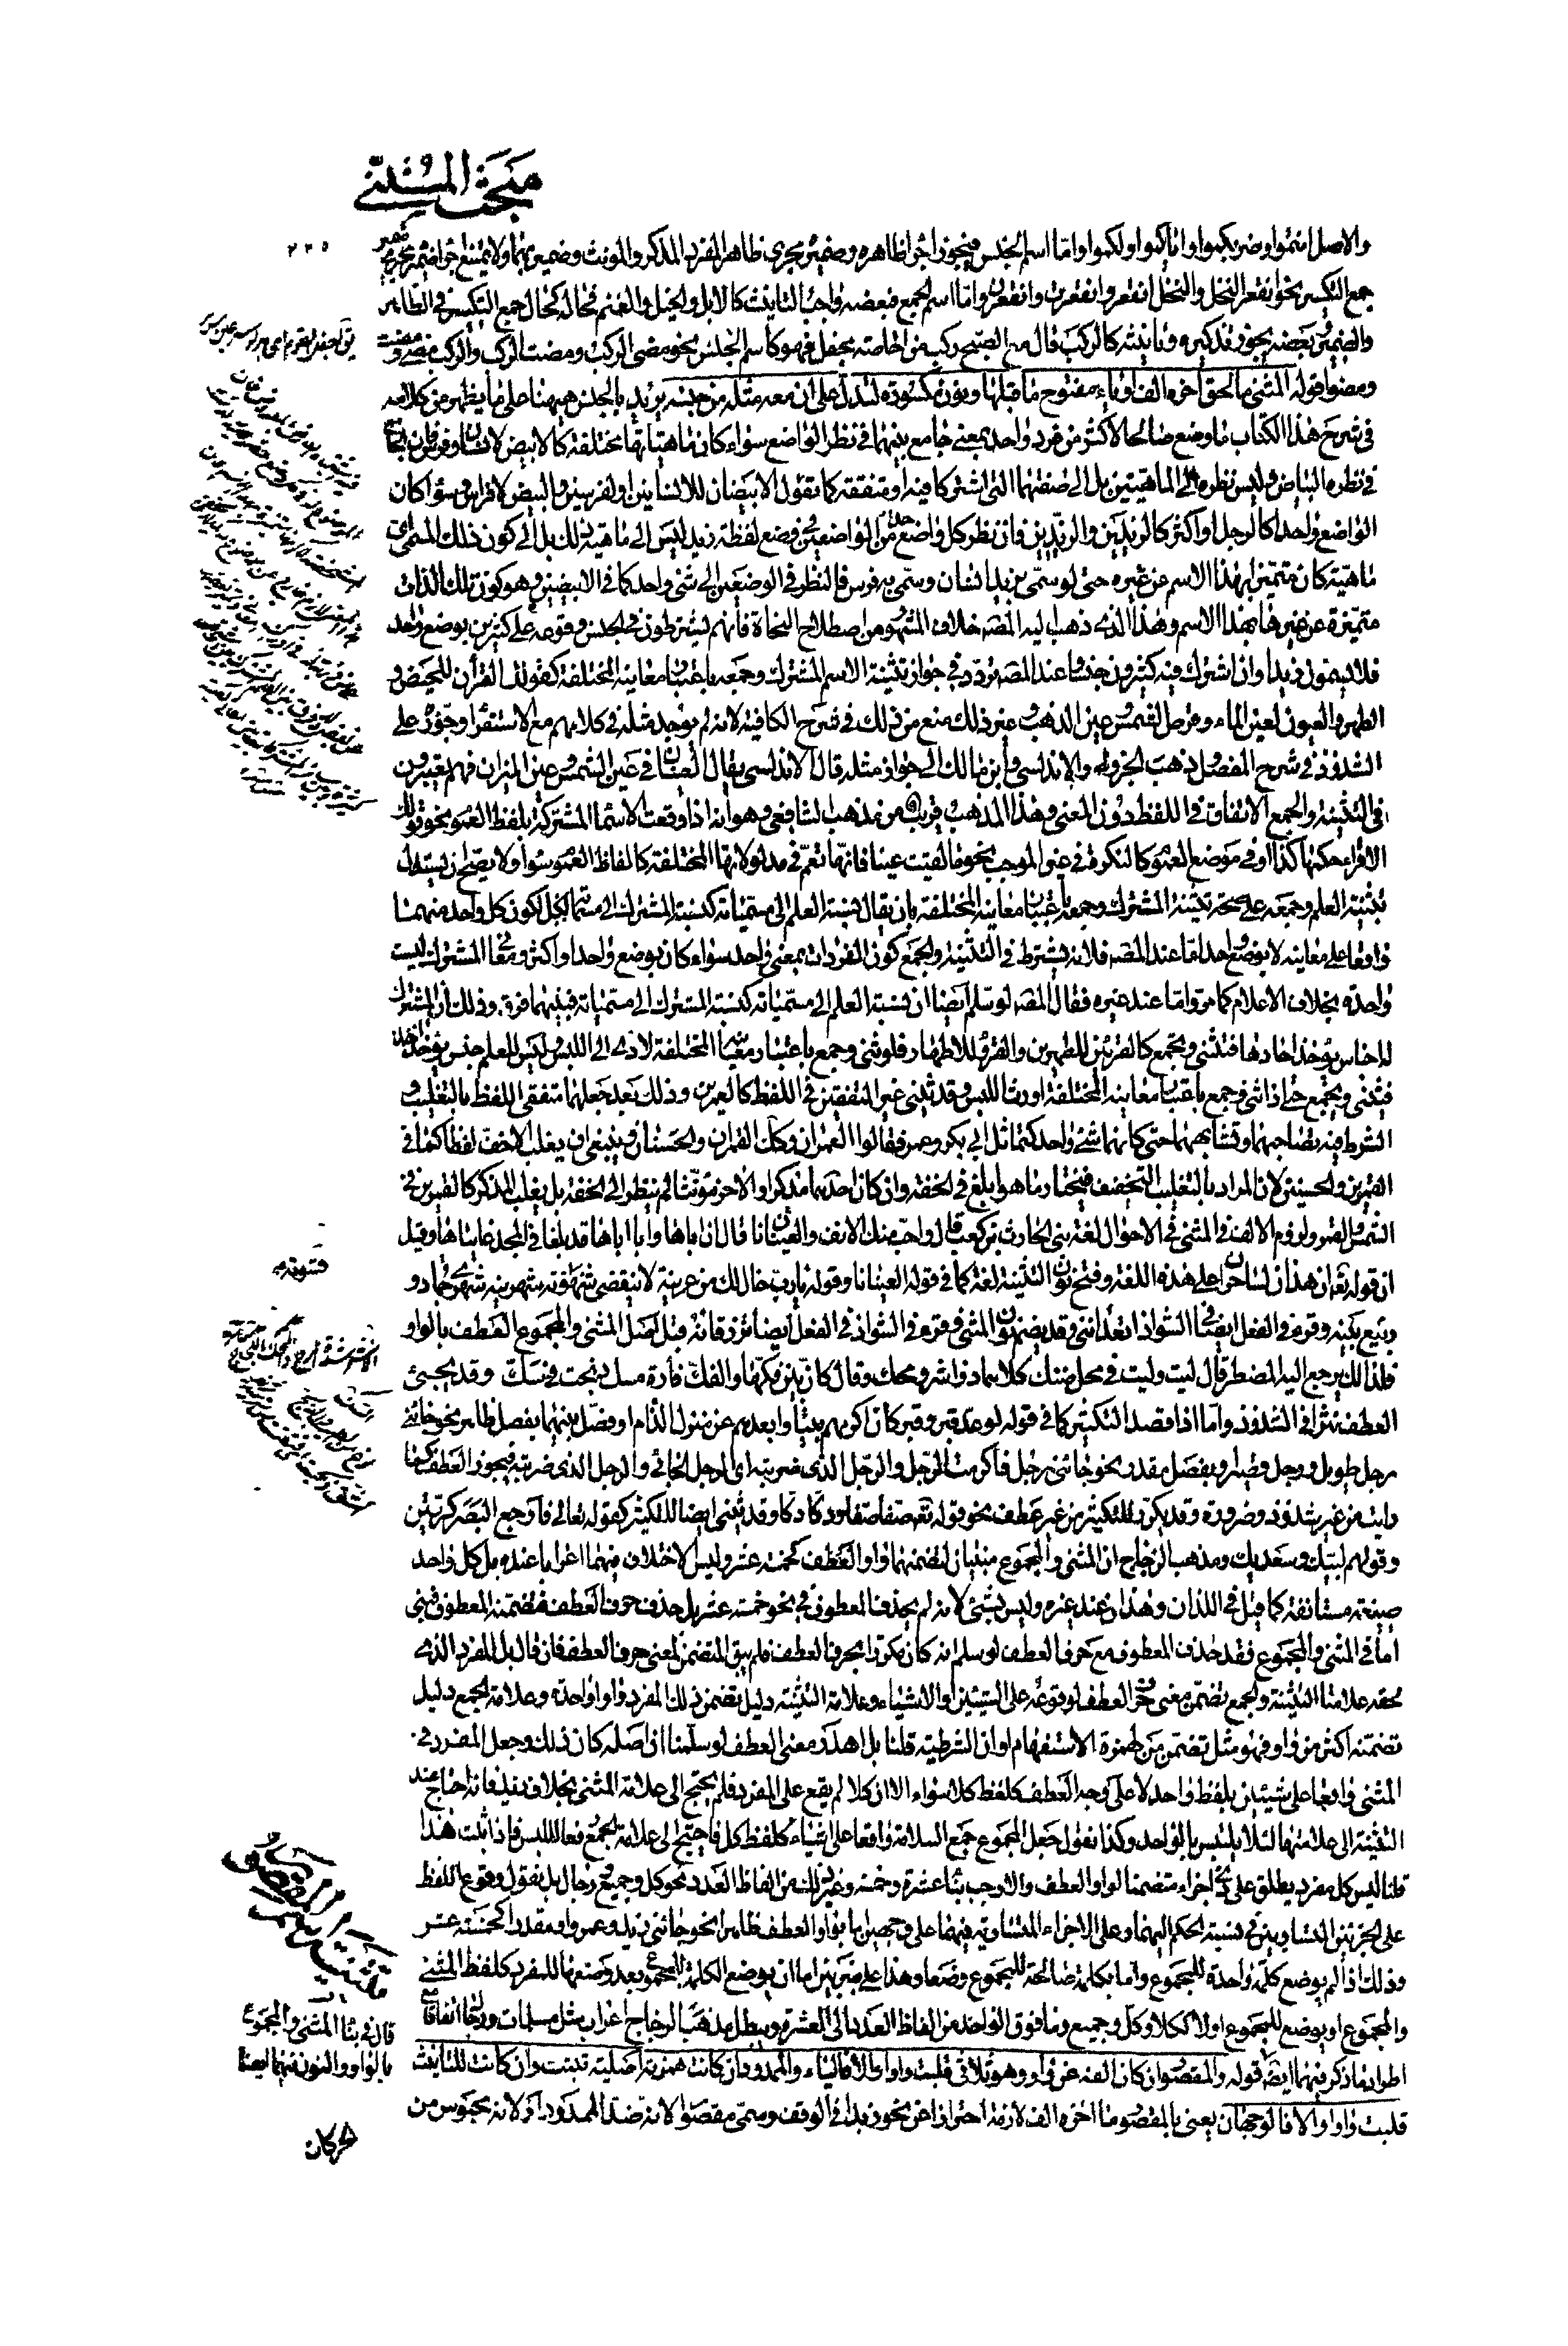 مبحث المثنى
٢٣٥
والاصل انتموا وضربكموا وانا لكموا ولكموا واما اسم الجنس فيجوز اجراء ظاهره وضميره مجرى ظاهر المفرد المذكر والمونث وضميرهما ولا يمتنع اجراء ضميره مجرى ضمير
جمع التكسير نحو انقعر النخل والنخل انقعر وانقعرت وانقعرن واما اسم الجمع فبعضه واجب التانيث كالابل والخيل والغنم فحاله كحال جمع التكسير في الظاهر
والضمير وبعضه يجوز تذكيره وتانيثه كالركب قال مع الصبح ركب من احاظة مجفل فهو كاسم الجنس نحو مضى الركب ومضت الركب والركب مضى ومضت
ومضوا قوله المثنى ما لحق اخره الف او ياء مفتوح ما قبلها ونون مكسورة لتدل على ان معه مثله من جنسه يريد بالجنس ههنا على ما يظهر من كلامه
في شرح هذا الكتاب ما وضع صالحا لاكثر من فرد واحد بمعنى جامع بينهما في نظر الواضع سواء كان ماهياتها مختلفة كالابيض لانسان وفرس فان الجامع
في نظره البياض وليس نظره الى الماهيتين بل الى صفتهما التي اشتركا فيها او متفقة كما تقول الابيضان للانسانين او لفرسين والبيض لافراس وسواء كان
الواضع واحدا كالرجل او اكثر كالزيدين والزيدين فان نظر كل واضع من الواضعين في وضع لفظة زيد ليس الى ماهية ذلك بل الى كون ذلك المسمى اي
ماهية كان متميزا بهذا الاسم عن غيره حتى لو سمى بزيد انسان وسمى به فرس فالنظر في الوضعين الى شئ واحد كما في الابيضين وهو كون تلك الذات
متميزة عن غيرها بهذا الاسم وهذا الذي ذهب اليه المصه خلاف المشهور من اصطلاح النحاة فانهم يشترطون في الجنس وقوعه على كثيرين بوضع واحد
فلا يسمون زيدا وان اشترك فيه كثيرون جنسا وعند المصه تردد في جواز تثنية الاسم المشترك وجمعه باعتبار معانيه المختلفة كقولك القرآن للحيض و
الطهر والعيون لعين الماء وقرص الشمس وعين الذهب وغير ذلك منع من ذلك في شرح الكافية لانه لم يوجد مثله في كلامهم مع الاستقراء وجوزه على
الشذوذ في شرح المفصل وذهب الجزولي والاندلسي وابن مالك الى جواز مثله قال الاندلسي يقال العينان في عين الشمس وعين الميزان فهم يعتبرون
في التثنية والجمع الاتفاق في اللفظ دون المعنى وهذا المذهب قريب من مذهب الشافعي وهو انه اذا وقعت الاسماء المشتركة بلفظ العموم نحو قولك
الاقراء حكمها كذا او في موضع العموم كالنكرة في غير الموجب نحو ما لقيت عينا فانها تعم في مدلولاتها المختلفة كالفاظ العموم سواء ولا يصح ان يستدل
بتثنية العلم وجمعه على صحة تثنية المشترك وجمعه باعتبار معانيه المختلفة بان يقال نسبة العلم الى مسمياته كنسبة المشترك الى مسمياته لكون كل واحد منهما
واقعا على معانيه لا بوضع واحد اما عند المصه فلانه يشترط في التثنية والجمع كون المفردات بمعنى واحد سواء كان بوضع واحد او اكثر ومعاني المشترك ليست
واحدة بخلاف الاعلام كما مر واما عند غيره فقال المصه لو سلم ايضا ان نسبة العلم الى مسمياته كنسبة المشترك الى مسمياته فبينهما فرق وذلك ان المشترك
له اجناس يؤخذ احادها فتثنى وتجمع كالقرئين للطهرين والقرؤ للاطهار فلو ثنى وجمع باعتبار معانيه المختلفة لادى الى اللبس وليس للعلم جنس يؤخذ احاده
فيثنى ويجمع حتى اذا ثنى وجمع باعتبار معانيه المختلفة اورث اللبس وقد يثنى غير المتفقين في اللفظ كالعمرين وذلك بعد جعلهما متفقى اللفظ بالتغليب و
الشرط فيه تصاحبهما وتشابههما حتى كانهما شئ واحد كتماثل ابي بكر وعمر فقالوا العمران وكك القمران والحسنان وينبغي ان يغلب الاخف لفظا كما في
العمرين والحسنين لان المراد بالتغليب التخفيف فيختار ما هو ابلغ في الخفة وان كان احدهما مذكرا والاخر مؤنثا لم ينظر الى الخفة بل يغلب المذكر كالقمرين في
الشمس والقمر ولزوم الالف في المثنى في الاحوال لغة بني الحارث بن كعب قال واحب منك الانف والعينانا قال ان اباها وابا اباها قد بلغا في المجد غايتاها وقيل
ان قوله تعه ان هذان لساحران على هذه اللغة وفتح نون التثنية لغة كما في قوله العينانا وقوله يا رب خال لك من عرينة لا تنقضى شهوته شهرى ربيع وجماديينه
وقرئ في الفعل ايضا في الشواذ اتعدانني وقد يضم نون المثنى وقرئ في الشواذ في الفعل ايضا ترزقانه قيل اصل المثنى والمجموع العطف بالواو
فلذلك يرجع اليه المضطر قال ليث وليث في محل ضنك كلاهما ذو اشر ومحك وقال كان بين فكها والفك فارة مسك ذبحت في سك وقد يجئ
العطف نثرا في الشذوذ واما اذا قصد التكثير كما في قوله لو عد قبر وقبر كان اكرمهم بيتا وابعدهم عن منزل الذام او فصل بينهما بفصل ظاهر نحو جائني
رجل طويل ورجل قصير او بفصل مقدر نحو جائني رجل فاكرمت الرجل والرجل الذي ضربته اي الرجل الجائي والرجل الذي ضربته فيجوز العطف كما
رايت من غير شذوذ وضرورة وقد يكرر للتكثير من غير عطف نحو قوله تعه صفا صفا ودكا دكا وقد يثنى ايضا للتكثير كقوله تعالى فارجع البصر كرتين
وقولهم لبيك وسعديك ومذهب الزجاج ان المثنى والمجموع مبنيان لتضمنهما واو العطف كخمسة عشر وليس الاختلاف فيهما اعرابا عنده بل كل واحد
صيغة مستانفة كما قيل في اللذان وهذان عند غيره وليس بشئ لانه لم يحذف المعطوف في نحو خمسة عشر بل حذف حرف العطف فتضمنه المعطوف فبنى
اما في المثنى والمجموع فقد حذف المعطوف مع حرف العطف لو سلم انه كان مكررا بحرف العطف فلم يبق المتضمن لمعنى حرف العطف فان قال بل المفرد الذي
لحقه علامتا التثنية والجمع تضمن معنى حرف العطف لوقوعه على الشيئين او الاشياء وعلامة التثنية دليل تضمن ذلك المفرد واوا واحدة وعلامة الجمع دليل
تضمنه اكثر من واو فهو مثل تضمن من همزة الاستفهام او ان الشرطية قلنا بل اهدر معنى العطف لو سلمنا ان اصله كان ذلك وجعل المفرد في
المثنى واقعا على شيئين بلفظ واحد لا على وجه العطف كلفظ كلا سواء الا ان كلا لم يقع على المفرد فلم يحتج الى علامة المثنى بخلاف زيد فانه احتاج عند
التثنية الى علامتها لئلا يلتبس بالواحد وكذا نقول جعل المجموع جمع السلامة واقعا على اشياء كلفظ كل فاحتيج الى علامة الجمع رفعا للبس فاذا ثبت هذا
قلنا ليس كل مفرد يطلق على ذي اجزاء متضمنا لواو العطف والا وجب بناء عشرة وخمسة وغير ذلك من الفاظ العدد نحو كل وجميع ورجال بل نقول وقوع اللفظ
على الجزئين المتساويين في نسبة الحكم اليهما وعلى الاجزاء المتساوية فيها على وجهين اما بواو العطف ظاهرا نحو جائني زيد وعمرو او مقدرا كخمسة عشر
وذلك اذا لم يوضع كلمة واحدة للمجموع واما بكلمة صالحة للمجموع وضعا وهذا على ضربين اما ان يوضع الكلمة للمجموع بعد وضعها للمفرد كلفظ المثنى
والمجموع او يوضع للمجموع اولا ككلا وكل وجميع وما فوق الواحد من الفاظ العدد الى العشرة ويبطل مذهب الزجاج اعراب مثل مسلمات ورجال اتفاقا مع
اطراد ما ذكر فيهما ايضا قوله والمقصور ان كان الفه عن واو وهو ثلاثي قلبت واوا والا فالياء والممدود ان كانت همزته اصلية تثبت وان كانت للتانيث
قلبت واوا والا فالوجهان يعني بالمقصور ما اخره الف لازمة احترازا عن نحو زيدا في الوقف وسمى مقصورا لانه ضد الممدود او لانه محبوس من
الحركات
قال في بناء المثنى والمجموع
بالواو والنون فيهما ايضا